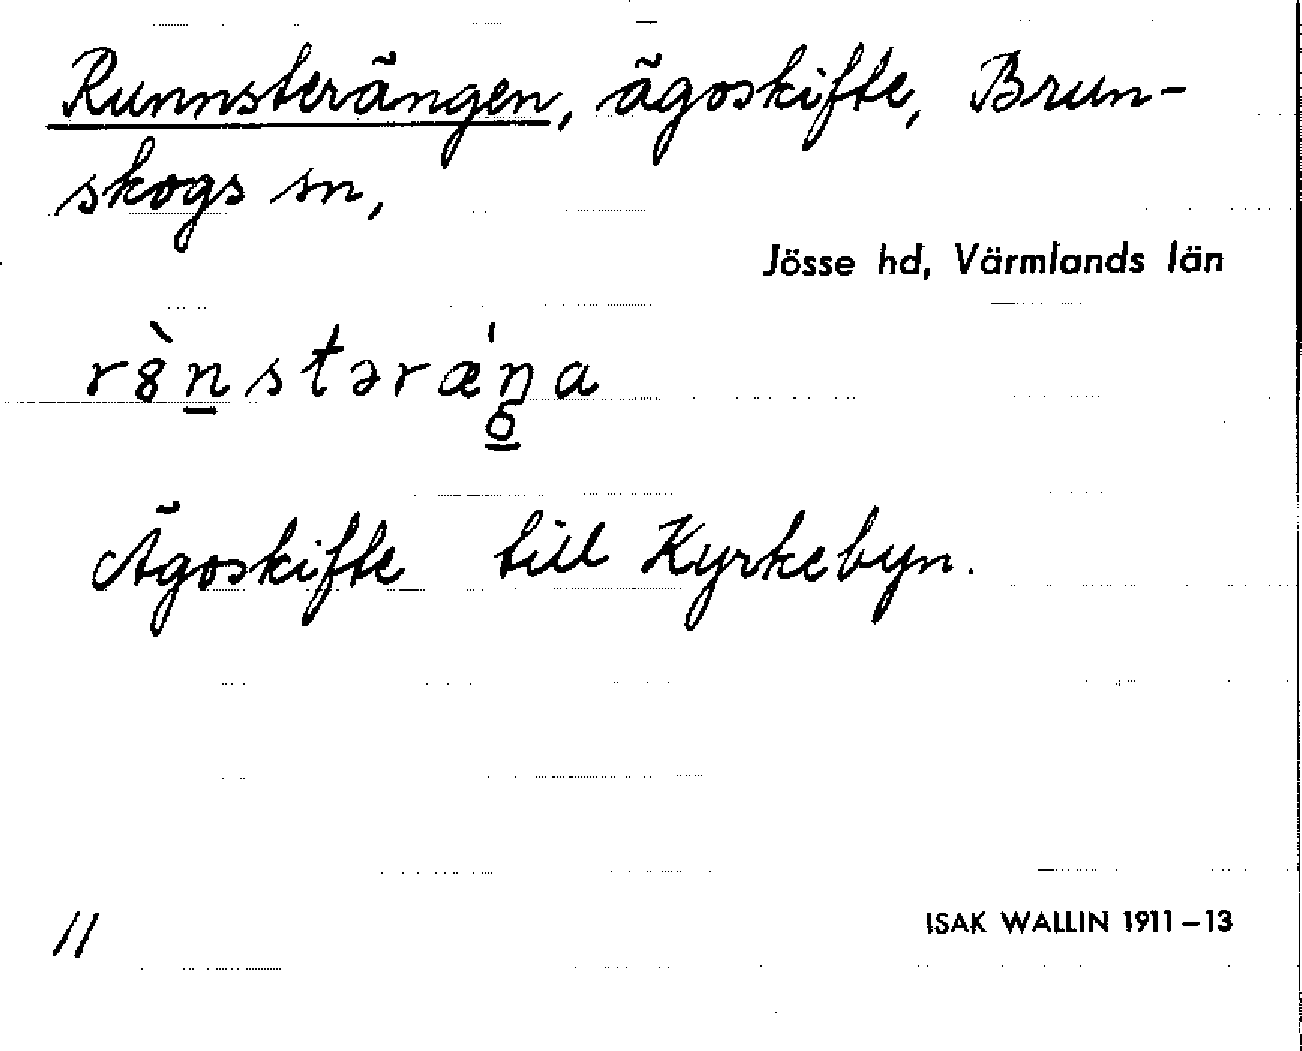 Runnsterängen, ägoskifte, Brun-
skogs sn,
Jösse hd, Värmlands län
r8̀n̲stərǽŋa
6̲
Ägoskifte till Kyrkebyn.
11
ISAK WALLIN 1911–13